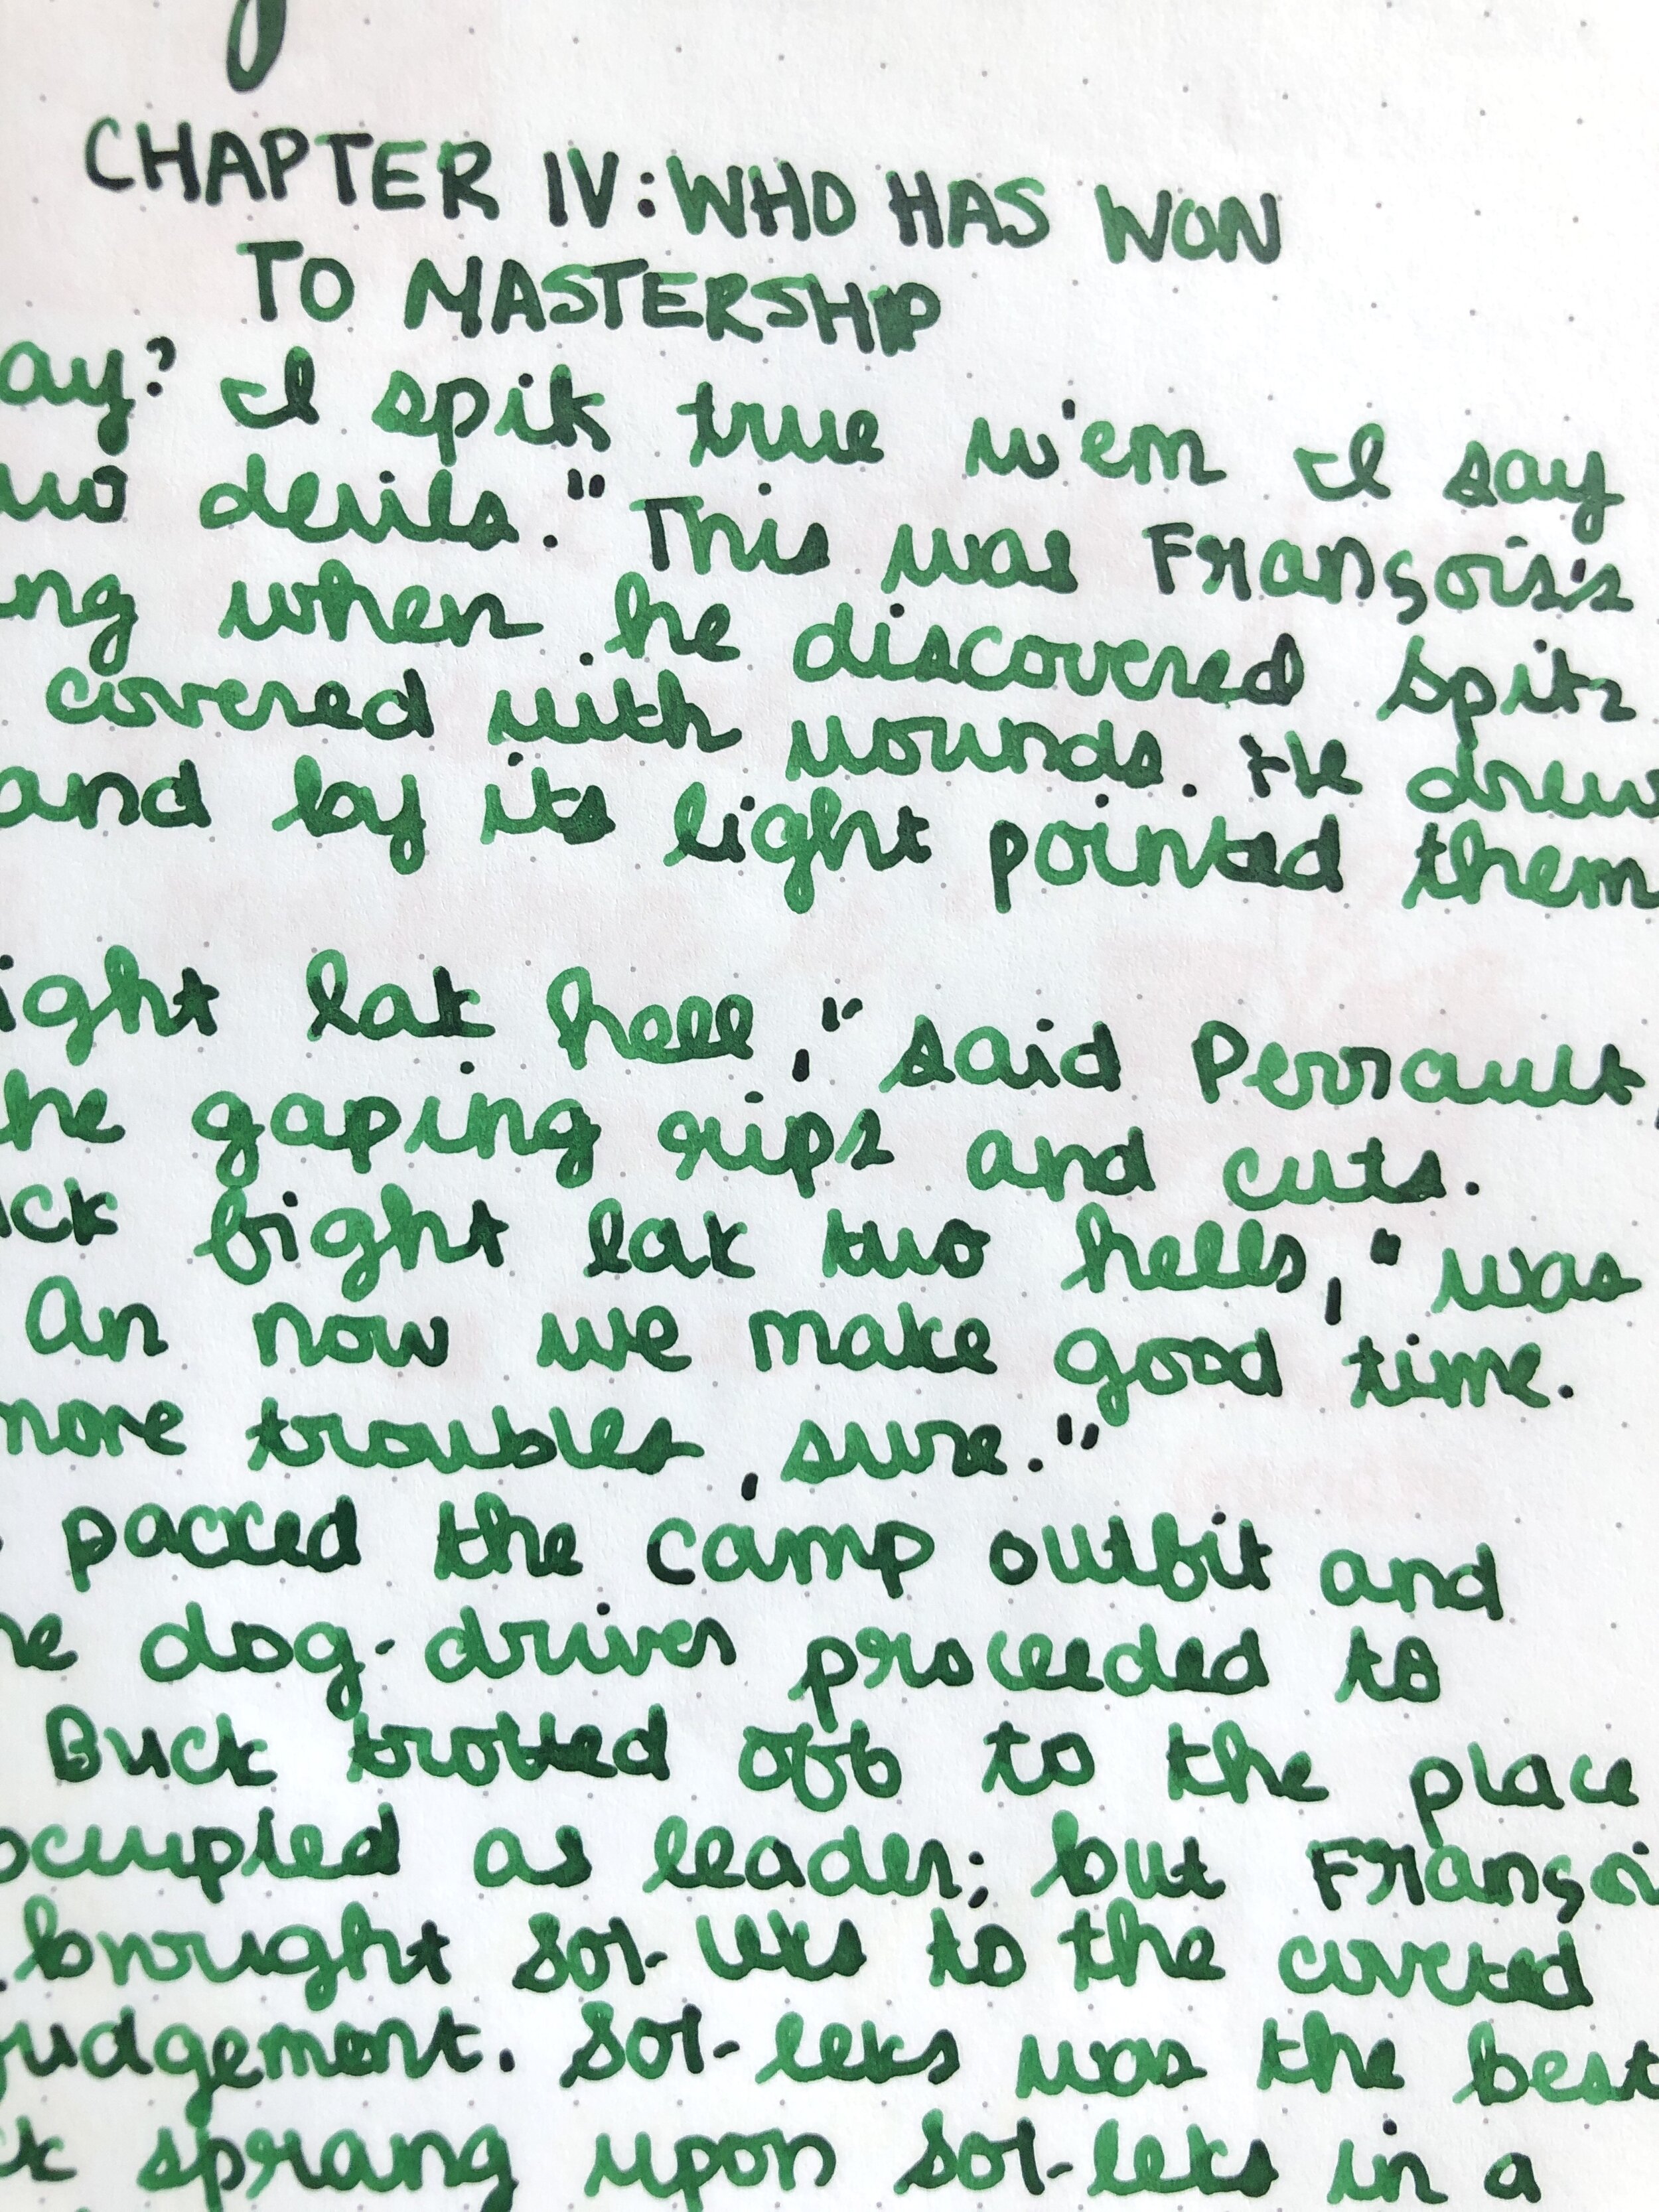 CHAPTER IV: WHO HAS WON
TO MASTERSHIP
ay? I spik true w'em I say
wo devils." This was François's
ng when he discovered spitz
covered with wounds. He drew
and by its light pointed them
ight lak hell," said Perrault,
he gaping rips and cuts.
ck fight lak two hells," was
An now we make good time.
more troubles, sure."
packed the camp outfit and
he dog-driver proceeded to
Buck trotted off to the place
occupied as leader; but Françoi
brought Sol-leks to the coveted
judgement. Sol-leks was the best
ck sprang upon Sol-leks in a